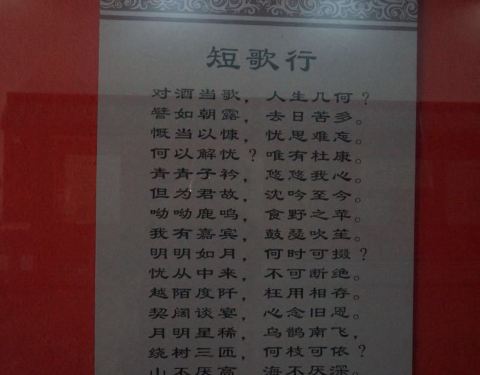 短歌行
对酒当歌，人生几何？
譬如朝露，去日苦多。
慨当以慷，忧思难忘。
何以解忧？唯有杜康。
青青子衿，悠悠我心。
但为君故，沈吟至今。
呦呦鹿鸣，食野之苹。
我有嘉宾，鼓瑟吹笙。
明明如月，何时可掇？
忧从中来，不可断绝。
越陌度阡，枉用相存。
契阔谈宴，心念旧恩。
月明星稀，乌鹊南飞，
绕树三匝，何枝可依？
山不厌高，海不厌深。